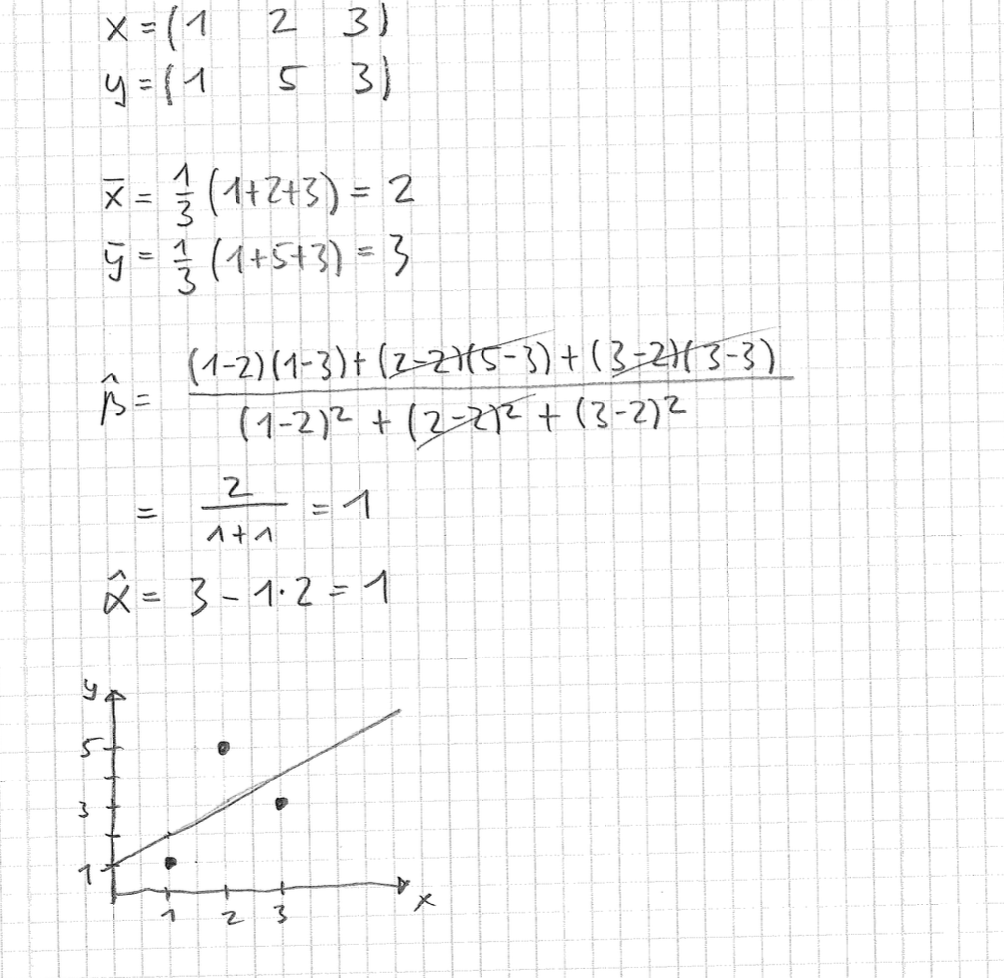 x = (1 2 3)
y = (1 5 3)
x̄ = 1/3 (1+2+3) = 2
ȳ = 1/3 (1+5+3) = 3
β̂ = ((1-2)(1-3) + (2-2)(5-3) + (3-2)(3-3)) / ((1-2)² + (2-2)² + (3-2)²)
= 2/(1+1) = 1
α̂ = 3 - 1·2 = 1
y
5
3
1
1 2 3 x